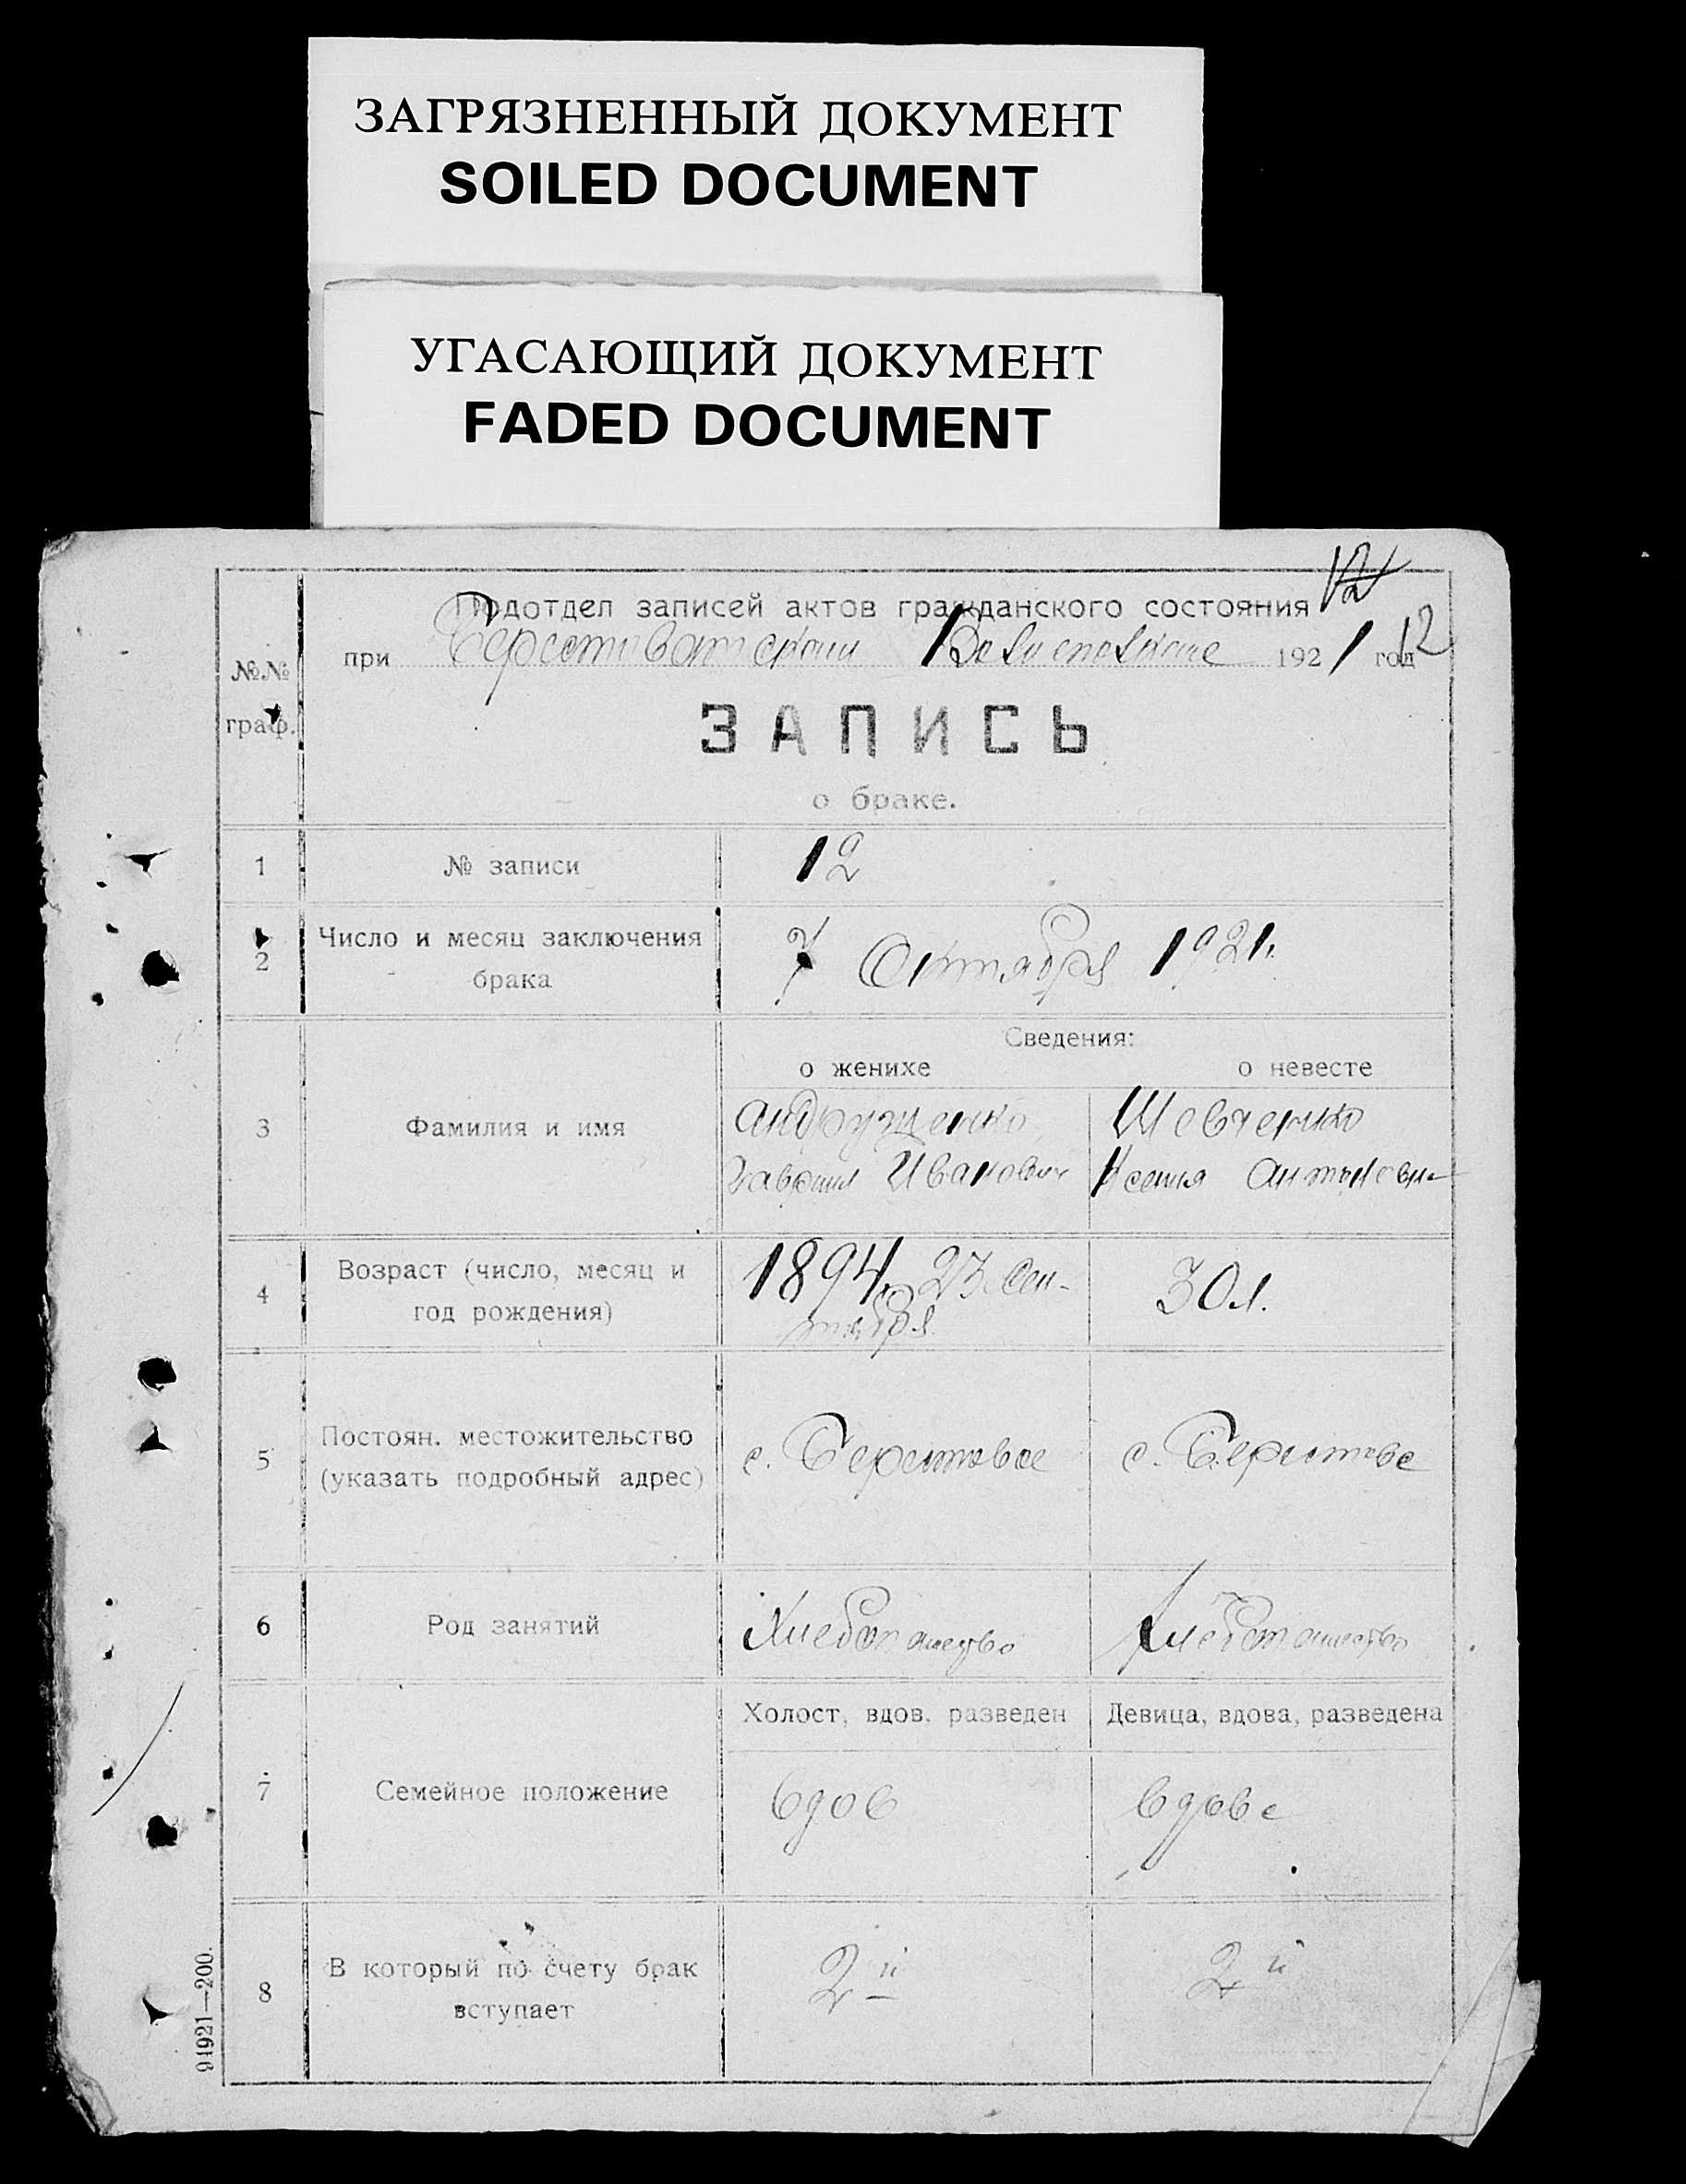 ЗАГРЯЗНЕННЫЙ ДОКУМЕНТ
SOILED DOCUMENT
УГАСАЮЩИЙ ДОКУМЕНТ
FADED DOCUMENT
12
Подотдел записей актов гражданского состояния
при 1921 год 12
№№
граф.
ЗАПИСЬ
о браке.
1 № записи 12
2 Число и месяц заключения
брака
7 Октября 1921.
Сведения:
о женихе о невесте
3 Фамилия и имя
Андрущенко Шевченко
Гавриил Иванович Ксения Антоновн
4 Возраст (число, месяц и
год рождения)
1894, 23 Сен-
тября
30 л.
5 Постоян. местожительство
(указать подробный адрес)
с. Берестовое с. Берестове
6 Род занятий
Хлебопашество Хлебопашество
Холост, вдов. разведен Девица, вдова, разведена
7 Семейное положение
вдов вдова
8 В который по счету брак
вступает
2й 2й
94921—200.